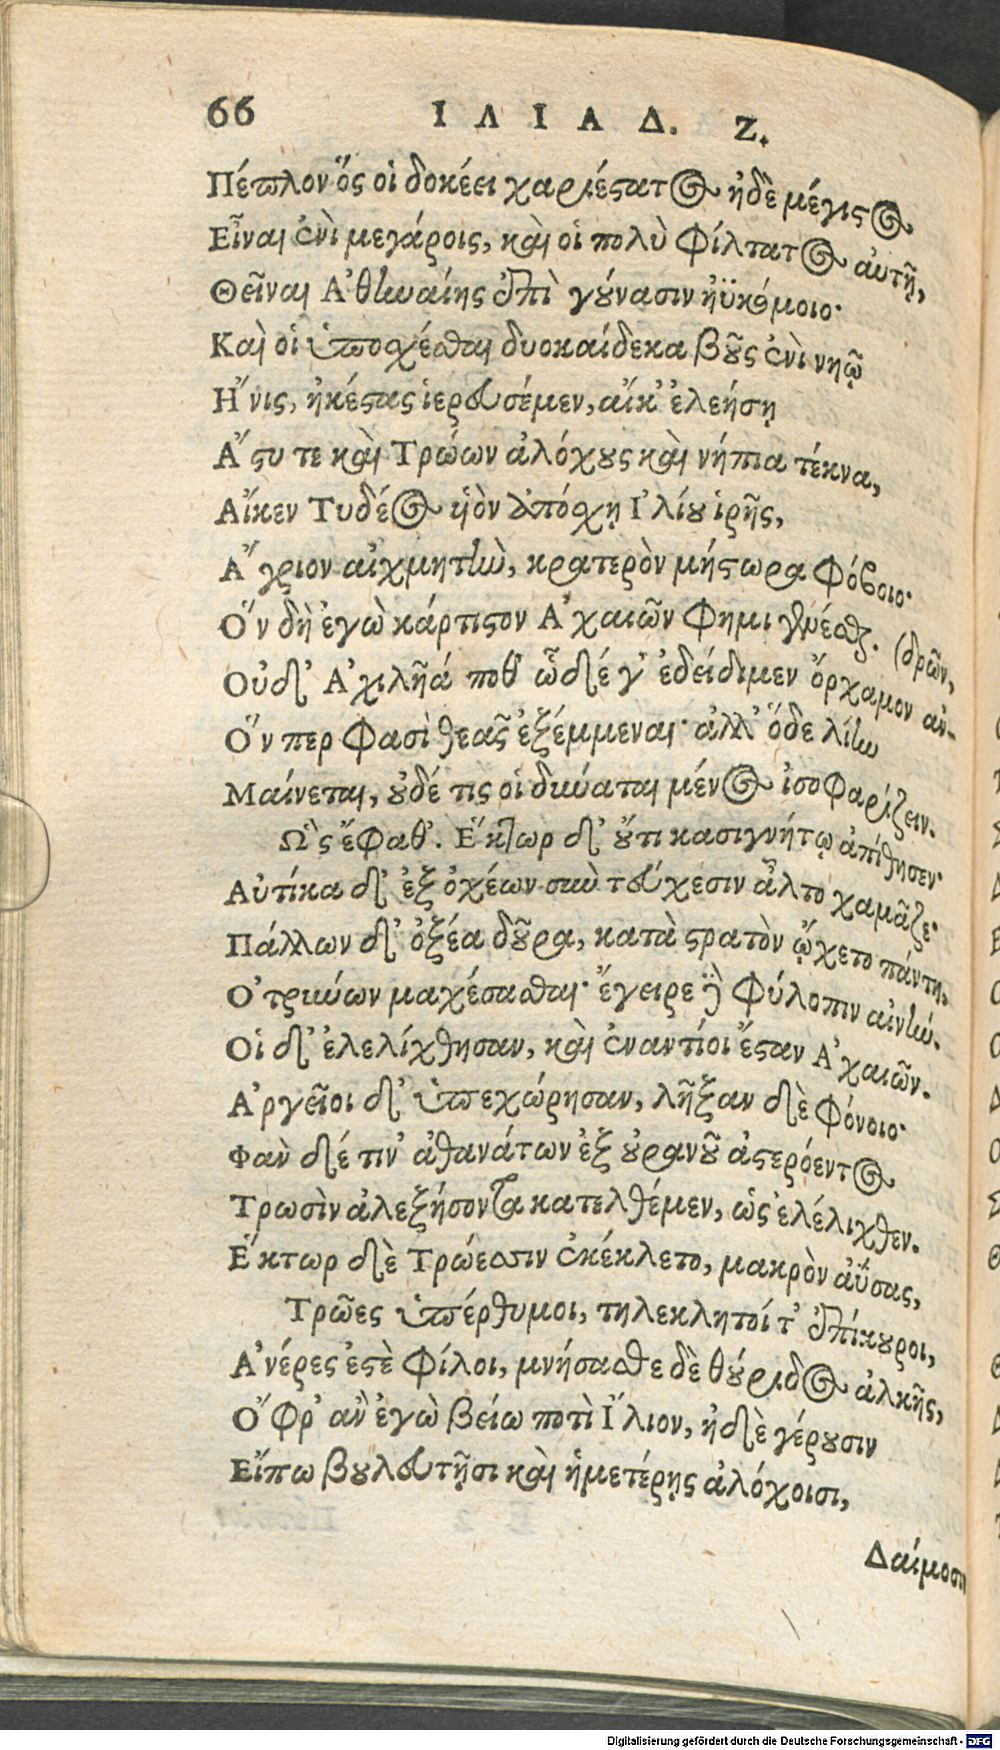 66 ΙΛΙΑΔ. Ζ.
Πέπλον ὅς οἱ δοκέει χαριέστατος ἠδὲ μέγιστος
Εἶναι ἐνὶ μεγάροις, καὶ οἱ πολὺ φίλτατος αὐτῇ,
Θεῖναι Ἀθηναίης ἐπὶ γούνασιν ἠϋκόμοιο·
Καὶ οἱ ὑποσχέσθαι δυοκαίδεκα βοῦς ἐνὶ νηῷ
Ἤνις, ἠκέστας ἱερευσέμεν, αἴκ' ἐλεήσῃ
Ἄστυ τε καὶ Τρώων ἀλόχους καὶ νήπια τέκνα,
Αἴκεν Τυδέος υἱὸν ἀπόσχῃ Ἰλίου ἱρῆς,
Ἄγριον αἰχμητὴν, κρατερὸν μήστωρα φόβοιο·
Ὅν δὴ ἐγὼ κάρτιστον Ἀχαιῶν φημι γενέσθαι. (δρῶν,
Οὐδ' Ἀχιλῆά ποθ' ὧδέ γ' ἐδείδιμεν ὄρχαμον ἀν-
Ὅν περ φασὶ θεᾶς ἐξέμμεναι· ἀλλ' ὅδε λίην
Μαίνεται, οὐδέ τις οἱ δύναται μένος ἰσοφαρίζειν.
Ὣς ἔφαθ'. Ἕκτωρ δ' οὔτι κασιγνήτῳ ἀπίθησεν·
Αὐτίκα δ' ἐξ ὀχέων σὺν τεύχεσιν ἆλτο χαμᾶζε·
Πάλλων δ' ὀξέα δοῦρα, κατὰ στρατὸν ᾤχετο πάντη,
Ὀτρύνων μαχέσασθαι· ἔγειρε δὲ φύλοπιν αἰνήν.
Οἱ δ' ἐλελίχθησαν, καὶ ἐναντίοι ἔσταν Ἀχαιῶν.
Ἀργεῖοι δ' ὑπεχώρησαν, λῆξαν δὲ φόνοιο·
Φὰν δέ τιν' ἀθανάτων ἐξ οὐρανοῦ ἀστερόεντος
Τρωσὶν ἀλεξήσοντα κατελθέμεν, ὡς ἐλέλιχθεν.
Ἕκτωρ δὲ Τρώεσσιν ἐκέκλετο, μακρὸν ἀΰσας,
Τρῶες ὑπέρθυμοι, τηλεκλητοί τ' ἐπίκουροι,
Ἀνέρες ἐστὲ φίλοι, μνήσασθε δὲ θούριδος ἀλκῆς,
Ὄφρ' ἂν ἐγὼ βείω ποτὶ Ἴλιον, ἠδὲ γέρουσιν
Εἴπω βουλευτῇσι καὶ ἡμετέρῃς ἀλόχοισι,
Δαίμοσιν
Digitalisierung gefördert durch die Deutsche Forschungsgemeinschaft - DFG